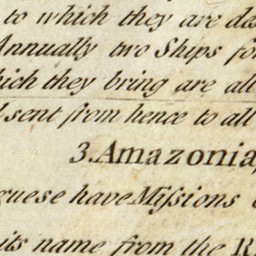 to which they are
Annually two Ships
which they bring are all
sent from hence to all
3. Amazonia,
have Miſsions
its name from the